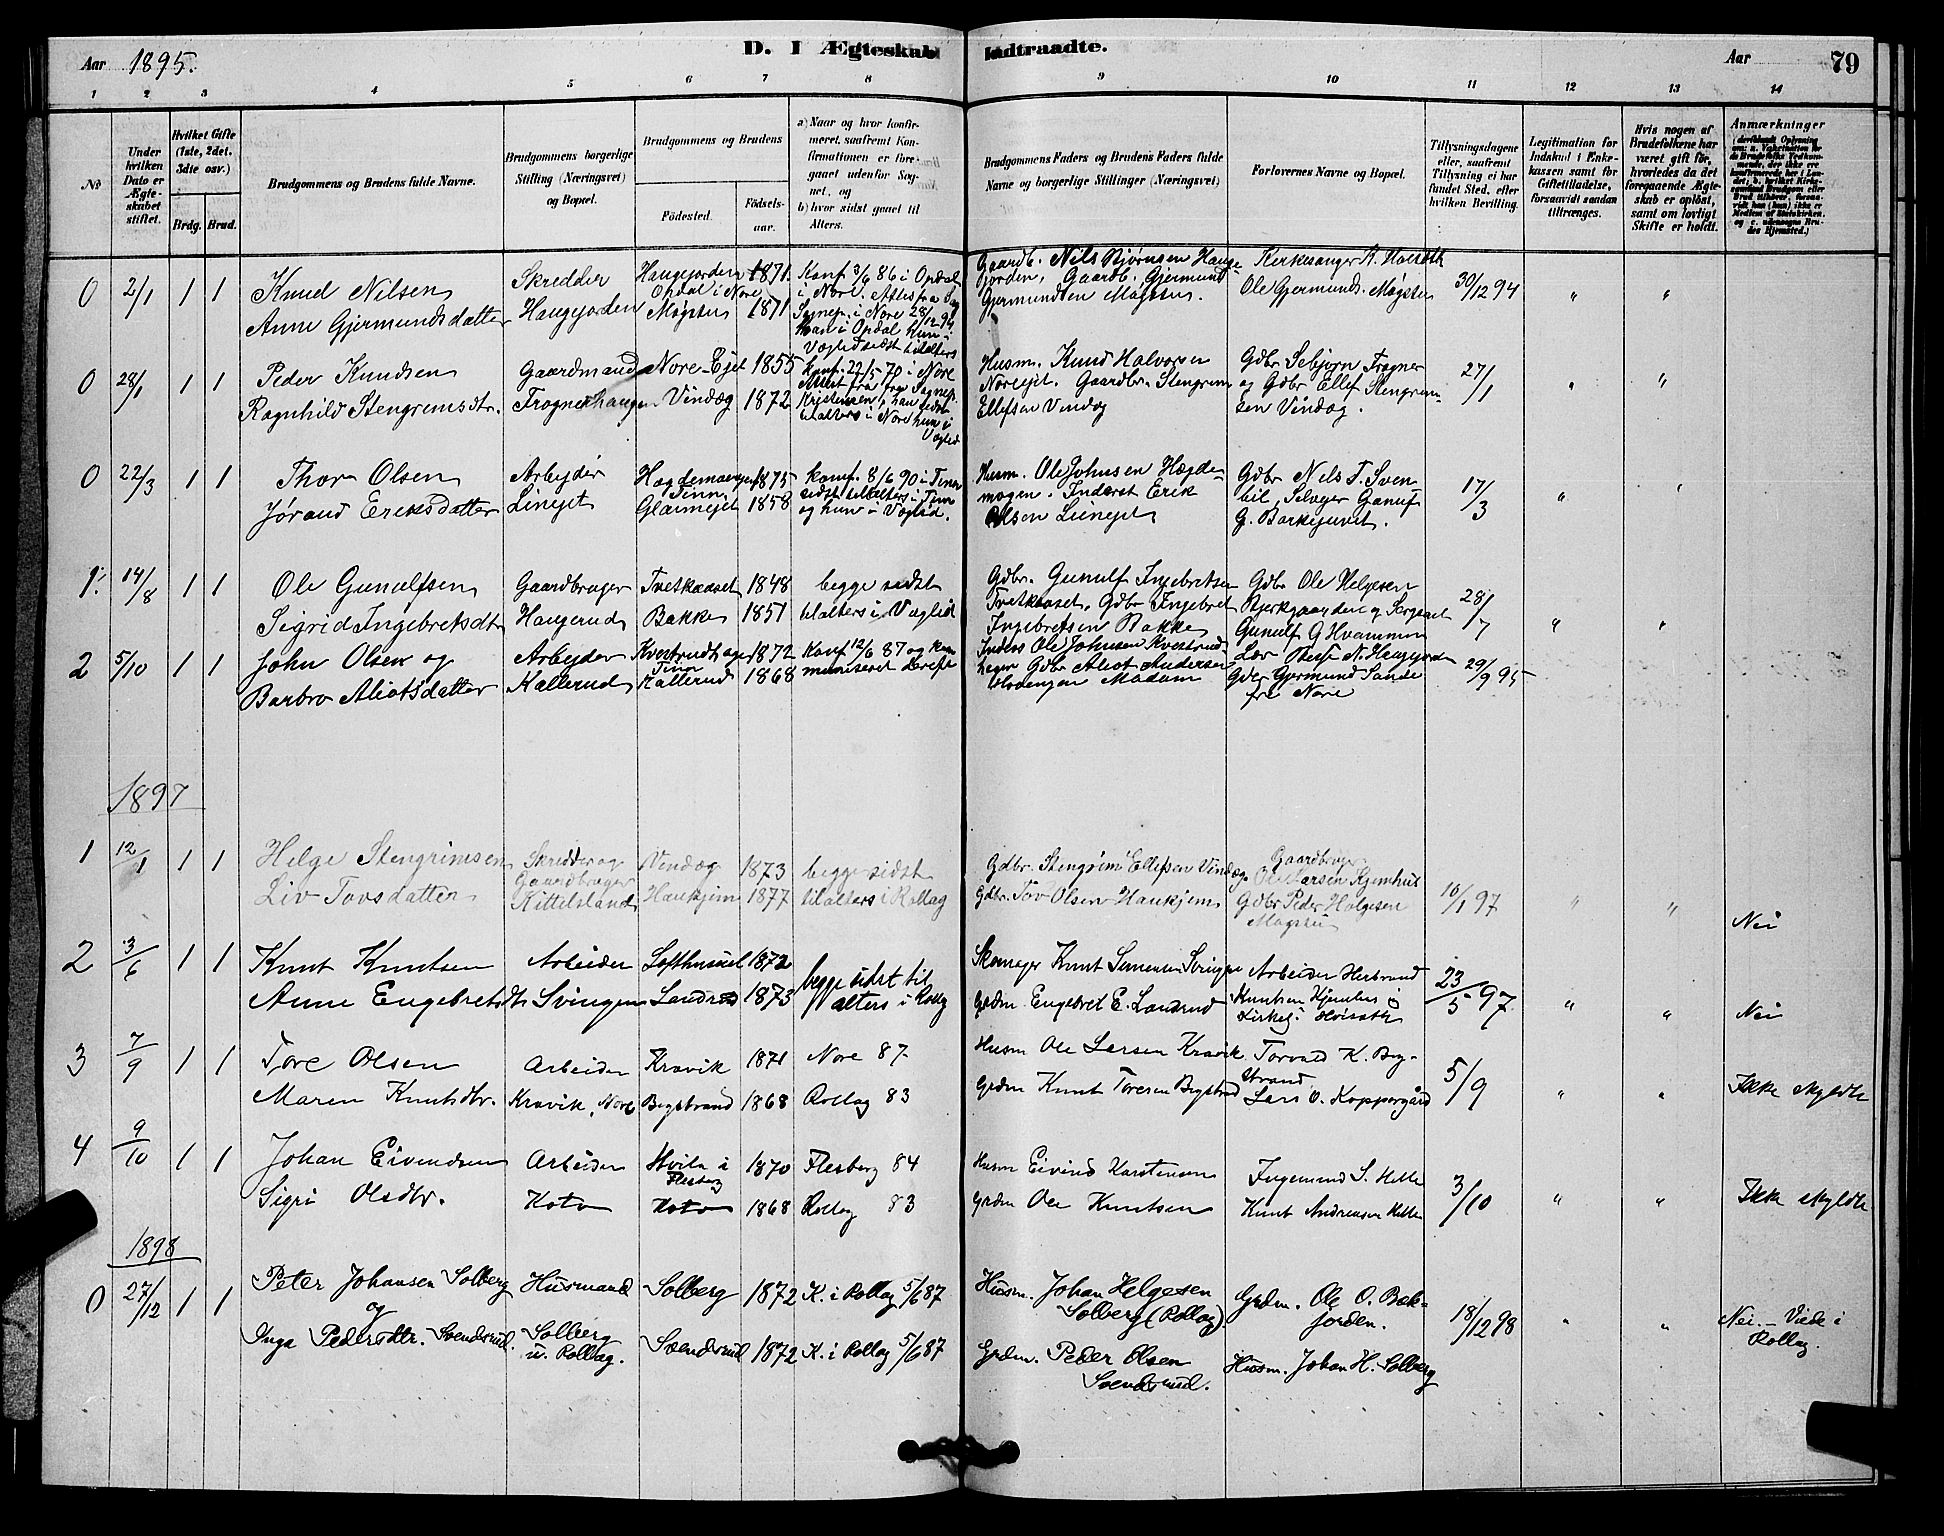 D. I Ægteskab Indtraadte.
Aar 1895.
Aar
79
1 2 3 4 5 6 7 8 9 10 11 12 13 14
No
Under hvilken Dato er Ægteskabet stiftet.
Hvilket Gifte (1ste, 2det, 3dte osv.)
Brdg. Brud.
Brudgommens og Brudens fulde Navne.
Brudgommens borgerlige Stilling (Næringsvei) og Bopæl.
Brudgommens og Brudens
Födested.
Födsels-aar.
a) Naar og hvor konfirmeret, saafremt Konfirmationen er foregaaet udenfor Sognet, og
b) hvor sidst gaaet til Alters.
Brudgommens Faders og Brudens Faders fulde Navne og borgerlige Stillinger (Næringsvei)
Forlovernes Navne og Bopæl.
Tillysningsdagene eller, saafremt Tillysning ei har fundet Sted, efter hvilken Bevilling.
Legitimation for Indskud i Enkekassen samt for Giftetilladelse, forsaavidt saadan tiltrænges.
Hvis nogen af Brudefolkene har været gift för, hvorledes da det foregaaende Ægteskab er oplöst, samt om lovligt Skifte er holdt.
Anmærkninger
0 2/1 1 1
Knud Nilsen
Anne Gjermundsdatter
Skredder
Haugejorden
Haugejorden 1871.
Opdal i Nore
Møgstu 1871
Konf 3/6 86 i Opdal
i Nore. Attest fra
Sognep. i Nore 28/12 94.
han i Opdal hun i
Væglid sidst tilalters
Gaardb. Nils Bjørnsen Hauge-
jorden, Gaardb. Gjermund
Gjermundsen Møgstu.
Kirkesanger A. Hoisæth
Ole Gjermunds. Møgstu
30/12 94 " "
0 28/1 1 1
Peder Knudsen
Ragnhild Stengrimsdtr.
Gaardmand
Frognerhaugen
Nore-Ejet 1855
Vindæg 1872
Konf. 22/5 70 i Nore
Attest fra Sognep.
Kristensen, han sidst
tilalters i Nore hun i
Væglid
Husm. Knud Halvorsen
Noreejet. Gaardbr. Stengrim
Ellefsen Vindæg
Gdbr Sebjørn Frogner
og Gdbr Ellef Stengrim-
sen Vindæg.
27/1 " "
0 22/3 1 1
Thor Olsen
Jørand Eriksdatter
Arbejder
Liнејet
Hægdemogen 1875
Tinn
Glaimejet 1858
Konf. 8/6 90 i Tinn
sidst tilalters i Tinn
og hun i Væglid.
Husm. Ole Johnsen Hægde-
mogen. Inderst Erik
Olsen Liejet
Gdbr Nils T. Sven
bil, Selveier Gunulf
G. Barkejuvet.
17/3 " "
1. 14/8 1 1
Ole Gunulfsen
Sigrid Ingebretsdtr
Gaardbruger
Haugerud
Tvetkaaset 1848
Bakke 1851
begge sidst
tilalters i Væglid
Gdbr. Gunulf Ingebretsen
Tvetkaaset, Gdbr Ingebret
Ingebretsen Bakke
Gdbr Ole Helgesen
Bjerkgaarden og
Gunulf G Hvammen
28/7 " "
2 5/10 1 1
John Olsen og
Barbro Aliotsdatter
Arbejder
Kallerud
Kvestrudhagen 1872
Tinn
Kallerud 1868
Konf 12/6 87 og kom
muniseret derefter
Inders Ole Johnsen Kvestrud
hagen Gdbr Aliot Andersen
Gdbr Gjermund Sande
fra Nore
29/9 95
1897
1 12/1 1 1
Helge Stengrimsen
Liv Tovsdatter
Skrædder og
Gaardbruger
Kittilsland
Vindæg 1873
Haukjem 1877
begge sidst
tilalters i Rollag
Gdbr. Stengrim Ellefsen Vindæg
Gdbr. Tov Olsen Haukjem
Gaardbruger
Ole Larsen Kjemhus
Gdbr Peder Helgesen
Møgstu
10/1 97 " "
Nei
2 3/6 1 1
Knut Knutsen
Anne Engebretsdtr
Arbeider
Svingen
Lofthusuel 1872
Landrud 1873
begge sidst til
alters i Rollag
Skomager Knut Simensen Svingen
Grdm. Engebret E. Landrud
Arbeider Herbrand
Knutsen Kjemhus og
Kirkes. Hoisæth
23/5 97 " "
Nei
3 7/9 1 1
Tore Olsen
Maren Knutsdtr.
Arbeider
Kravik, Nore
Kravik 1871
Bygstrand 1868
Nore 87
Rollag 83
Husm Ole Larsen Kravik
Grdm Knut Toresen Bygstrand
Torvald K. Byg-
strand
Lars O. Koppergård
5/9 " "
Ikke skyldte
4 9/10 1 1
Johan Eivendsen
Sigri Olsdtr.
Arbeider
Hoto
Hvila i 1870
Flesberg
Hoto 1868
Flesberg 84
Rollag 83
Husm Eivind Karstensen
Grdm Ole Knutsen
Ingemund S. Helle
Knut Andreasen Helle
3/10 " "
Ikke skyldte
1898
0 27/12 1 1
Peter Johansen Solberg
og
Inga Pedersdtr. Svendsrud.
Husmand
Solberg
u. Rollag.
Solberg 1872
Svendsrud 1872
K. i Rollag 5/6 87
K. i Rollag 5/6 87
Husm. Johan Helgesen
Solberg (Rollag).
Grdm. Peder Olsen
Svendsrud.
Grdm. Ole O. Bak-
jorden.
Husm. Johan H. Solberg
18/12 98 " "
Nei. – Viede i
Rollag.